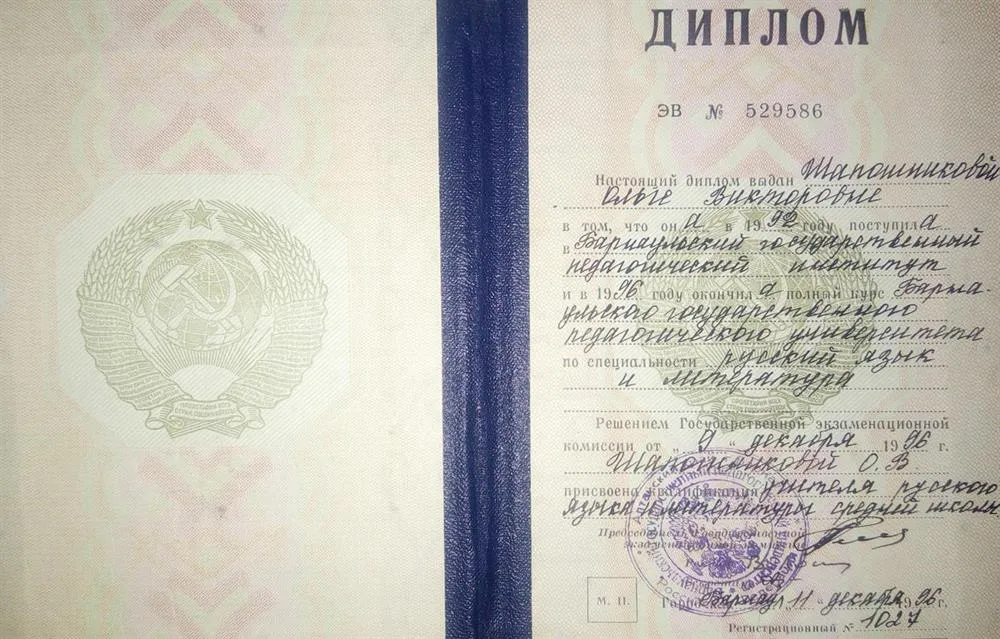 ДИПЛОМ
ЭВ № 529586
Настоящий диплом выдан Шапошниковой
Ольге Викторовне
в том, что он а в 1992 году поступил а
в Барнаульский государственный
педагогический институт
и в 1996 году окончил а полный курс Барна-
ульского государственного
педагогического университета
по специальности русский язык
и литература
Решением Государственной экзаменационной
комиссии от „9“ декабря 1996 г.
Шапошниковой О. В.
присвоена квалификация учителя русского
языка и литературы средней школы
Председатель Государственной
экзаменационной комиссии
М. П.
Город Барнаул 11 декабря 1996
Регистрационный № 1027